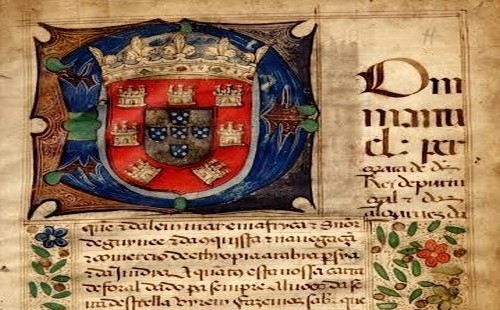 Dom
manu
el: per
graca de ds
Rei de purtu
gal z dos
algarues da
que z dalem mar em africa z Snor
de guynee z da 9quista z nauegaçã
z comercio de ethyopia arabia psya
z da India. A quãto esta nossa carta
de foral dado pa sempre da se
destella virem fazemos sabr que